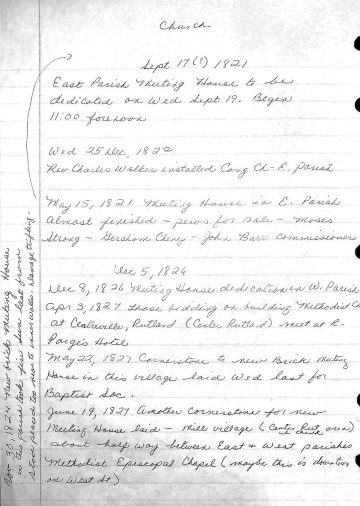 Church
Sept 17(?) 1821
East Parish Meeting House to be
dedicated on Wed Sept 19. Begin
11:00 forenoon
Wed 25 Dec, 1822
Rev Charles Walker installed Cong Ch - E. Parish
May 15, 1821 Meeting House in E. Parish
Almost finished - pews for sale - Moses
Strong - Gershom Cheney - John Barr commissioners
Dec 5, 1826
Dec 8, 1826 Meeting House dedication in W. Parish
Apr 3, 1827 Those bidding on building Methodist Ch
at Centreville, Rutland (Center Rutland) meet at R.
Paige's Hotel
May 22, 1827 Cornerstone to new Brick Meeting
House in this village laid Wed last for
Baptist Soc.
June 19, 1827 Another cornerstone for new
Meeting House laid - mill village (Center Rut area)
about half way between East & West parishes
Methodist Episcopal Chapel (maybe this is downtown
on West St)
Nov 30, 1824 New brick Meeting House
in this parish took fire Sun last from
stove placed too near to wall. Damage trifling